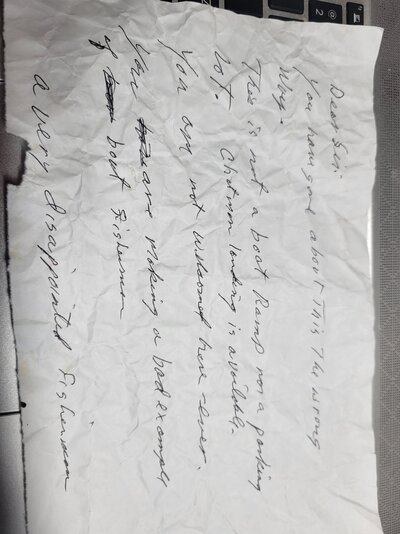 Dear Sir
You have gone about This The wrong
Way.
This is not a boat Ramp nor a parking
lot. Chatmon landing is available.
You are not welcomed here ever.
You are making a bad example
of boat Fishermen
a very disappointed Fisherman